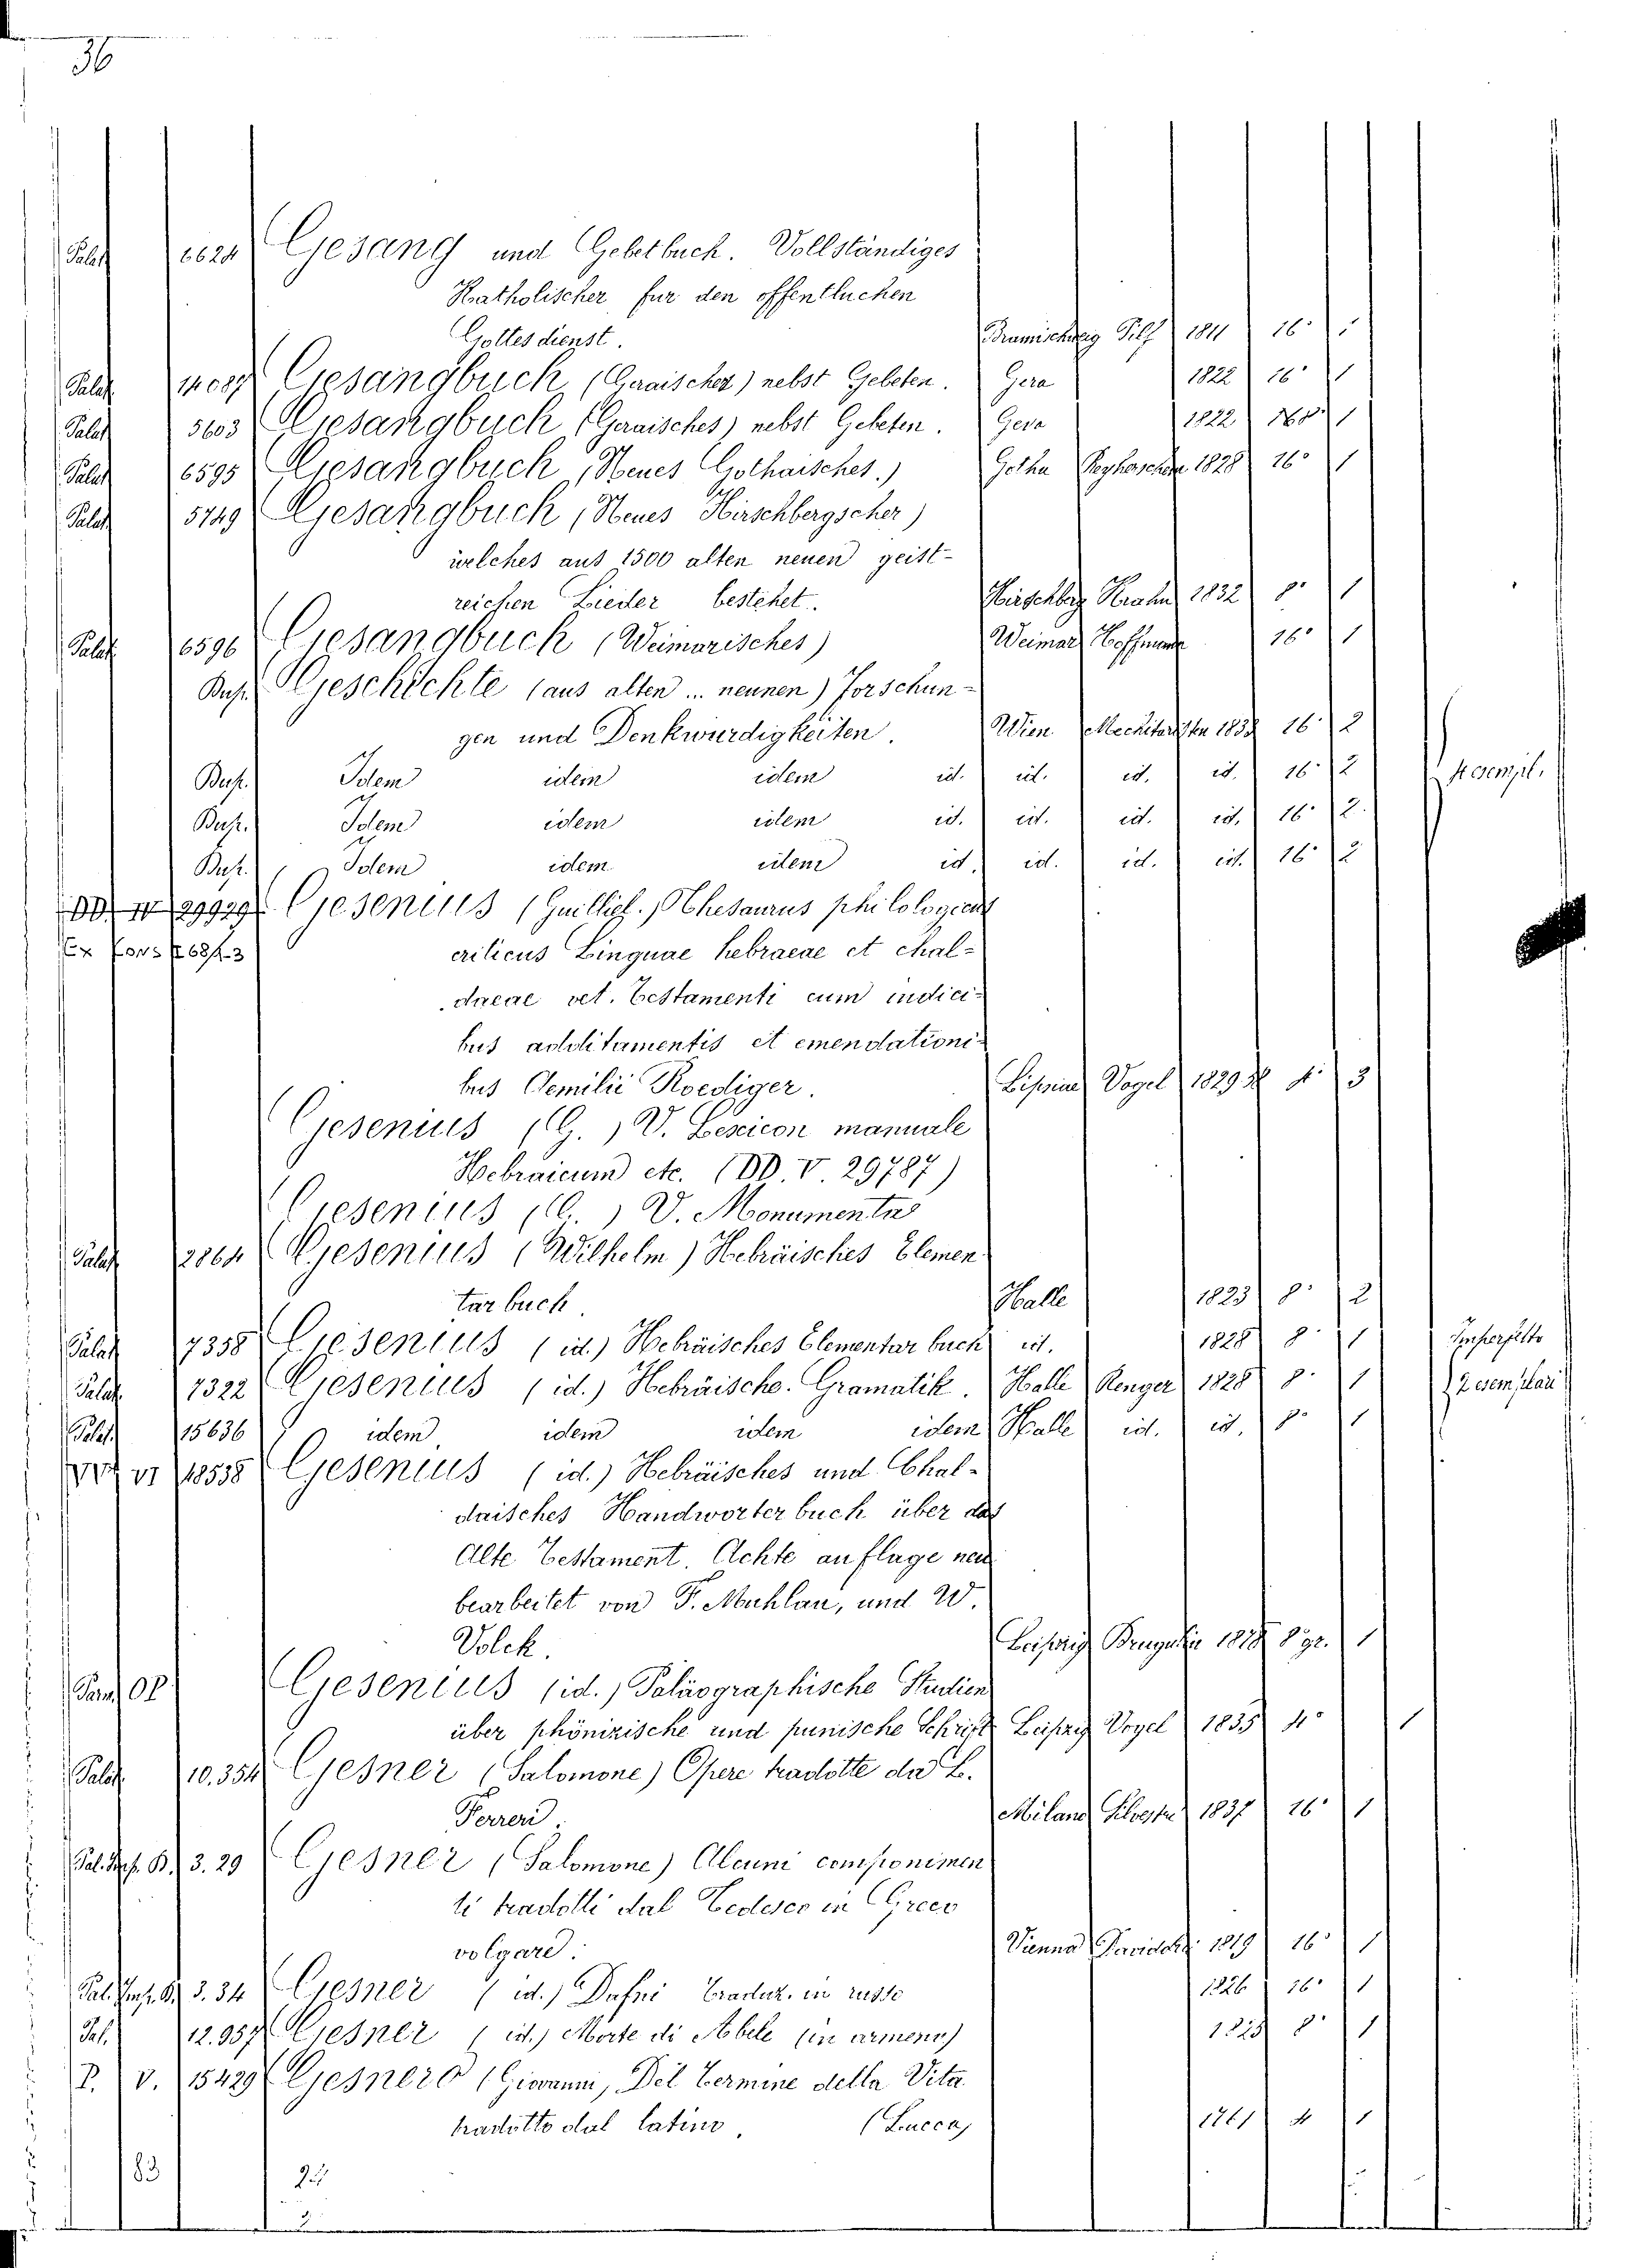 36
Palat 6624 Gesang und Gebetbuch. Vollständiges
Katholischer fur den offentlichen
Gottesdienst. 1811 16° 1
Palat 14087 Gesangbuch (Geraischer) nebst Gebeten. Gera 1822 16° 1
Palat 5603 Gesangbuch (Geraisches) nebst Gebeten. Gera 1822 1
Palat 6595 Gesangbuch, (Neues Gothaisches.) Gotha 1828 16° 1
Palat 5749 Gesangbuch (Neues Hirschbergscher)
welches aus 1500 alten neuen geist-
reichen Lieder bestehet. Hirschberg Krahn 1832 8° 1
Palat 6596 Gesangbuch (Weimarisches) Weimar Hoffmann 16° 1
Bup. Geschichte (aus alten ... neunen) Forschun-
gen und Denkwürdigkeiten. Wien Mechitaristen 1838 16° 2
Bup. Idem idem idem id. id. id. id. 16° 2 4 esempl.
Bup. Idem idem idem id. id. id. id. 16° 2.
Bup. Idem idem idem id. id. id. id. 16° 2
DD. IV 29929 Gesenius (Guilliel.) Thesaurus philologicus
Ex Fons E68/1-3 criticus Linguae hebraeae et chal-
daeae vet. Testamenti cum indici-
bus additamentis et emendationi-
bus Aemilii Roediger. Lipsiae Vogel 1829 4° 3
Gesenius (G.) V. Lexicon manuale
Hebraicum etc. (DD. V. 29787)
Gesenius (G.) V. Monumenta
Palat 2864 Gesenius (Wilhelm) Hebräisches Elemen
tar buch. Halle 1823 8° 2
Palat 7358 Gesenius (id.) Hebräisches Elementar buch id. 1828 8° 1 Imperfetto
Palat. 7322 Gesenius (id.) Hebräische. Gramatik. Halle Renger 1828 8° 1 2 esemplari
Palat. 15636 idem idem idem idem Halle id. id. 8° 1
VI 18538 Gesenius (id.) Hebräisches und Chal-
daisches Handworter buch über das
Alte Testament. Achte auflage neu
bearbeitet von F. Muhlau, und W.
Volck. Leipzig 1878 8° gr. 1
OP Gesenius (id.) Paläographische Studien
über phönizische und punische Schrift Leipzig Vogel 1835 4° 1
Palat. 10.354 Gesner (Salomone) Opere tradotte da L.
Ferreri. Milano Silvestri 1837 16° 1
Pal. Imp. B. 3. 29 Gesner (Salomone) Alcuni componimen
ti tradotti dal Tedesco in Greco
volgare. Vienna 1819 16° 1
Pal. Imp. B. 3. 34 Gesner (id.) Dafni Traduz. in russo 1826 16° 1
Pal. 12.957 Gesner (id.) Morte di Abele (in armeno) 1825 8° 1
P. V. 15429 Gesnero (Giovanni, Del Termine della Vita
tradotto dal latino. (Lucca) 1761 4 1
83